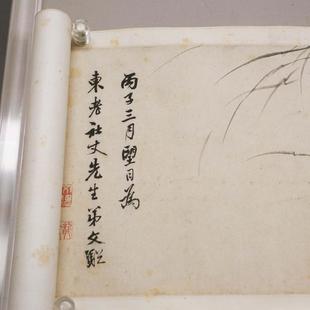 丙子三月望日為
東老社丈先生弟文